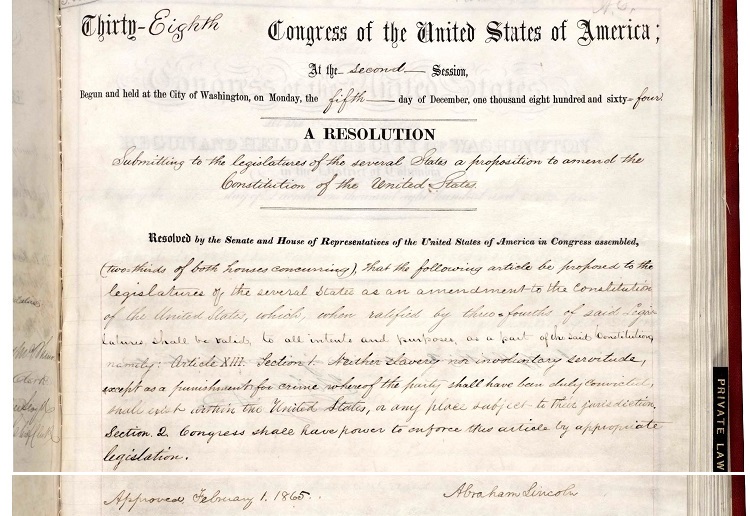 Thirty-Eighth Congress of the United States of America;
At the second Session,
Begun and held at the City of Washington, on Monday, the fifth day of December, one thousand eight hundred and sixty-four.
A RESOLUTION
Submitting to the legislatures of the several States a proposition to amend the
Constitution of the United States.
Resolved by the Senate and House of Representatives of the United States of America in Congress assembled,
(two-thirds of both houses concurring), that the following article be proposed to the
legislatures of the several States as an amendment to the Constitution
of the United States, which, when ratified by three-fourths of said Legis-
latures shall be valid, to all intents and purposes, as a part of the said Constitution,
namely: Article XIII. Section 1. Neither slavery nor involuntary servitude,
except as a punishment for crime whereof the party shall have been duly convicted,
shall exist within the United States, or any place subject to their jurisdiction.
Section 2. Congress shall have power to enforce this article by appropriate
legislation.
Approved, February 1. 1865.
Abraham Lincoln
PRIVATE LAW